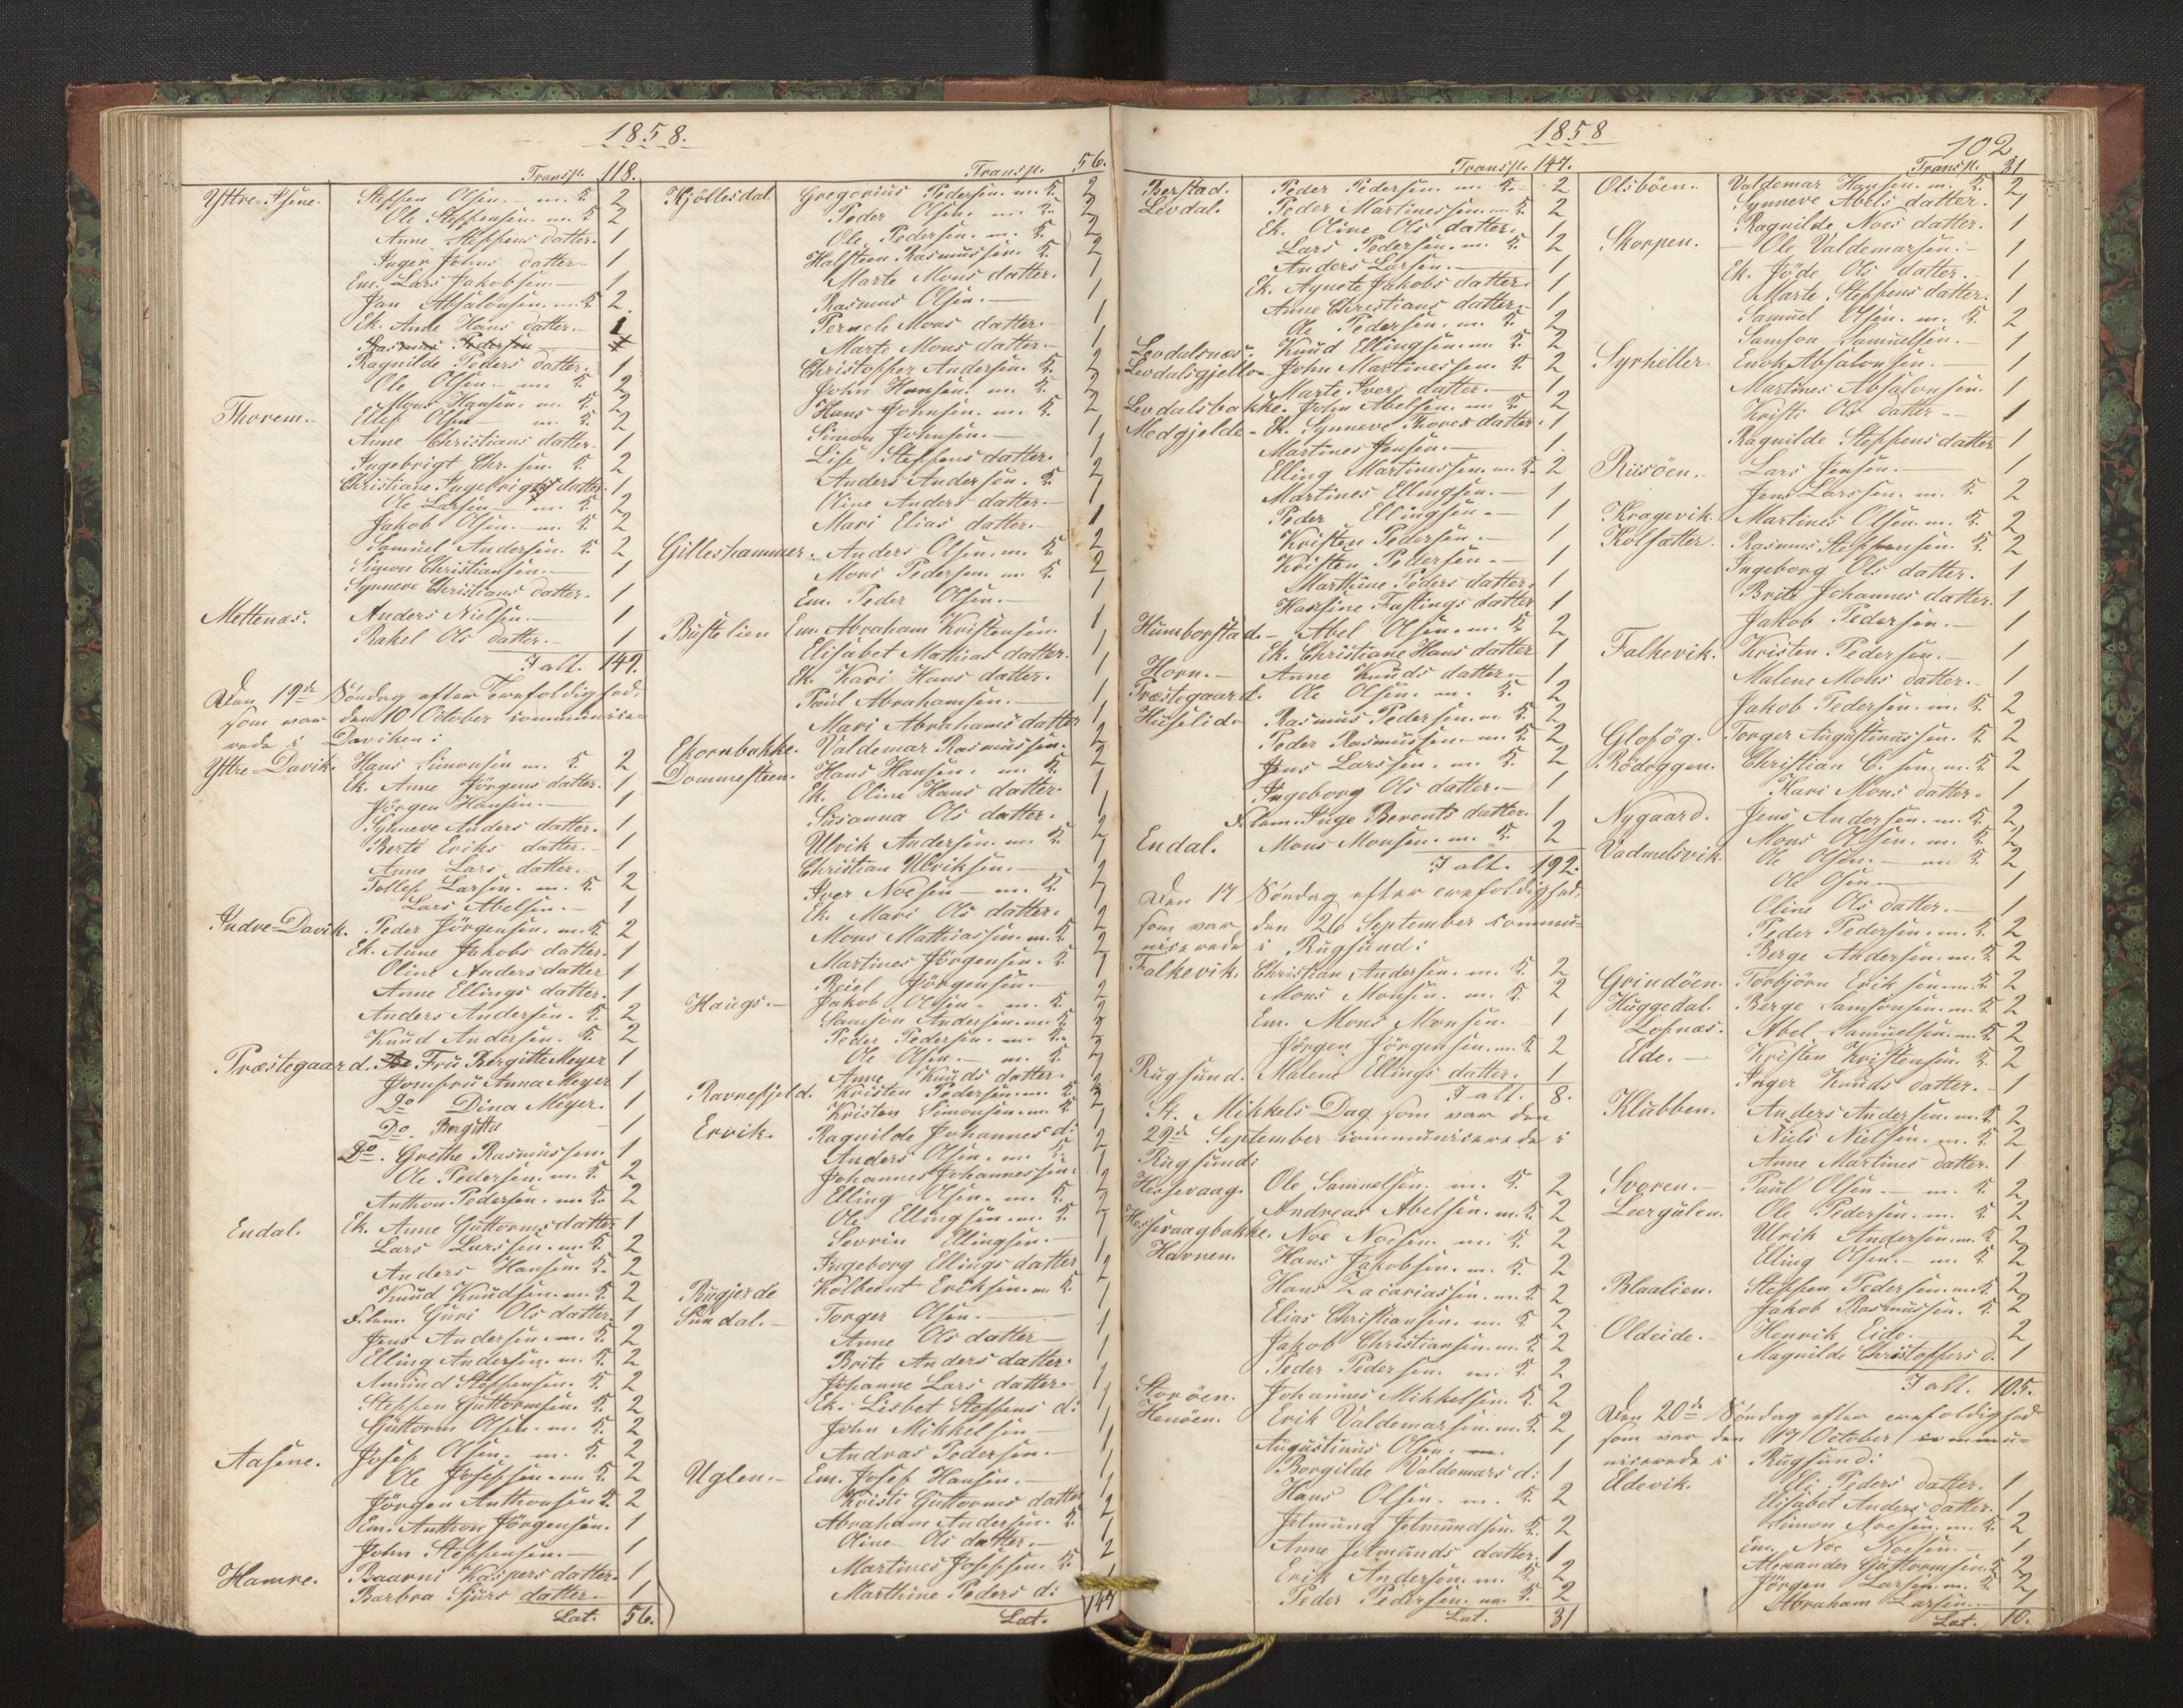 1858.
Transp. 118.
Yttre-Aasene. Steffen Olsen. m. K. 2
Ole Steffensen. m. K. 2
Anne Steffens datter. 1
Inger Johns datter. 1
Em. Lars Jakobsen. 1
Jan Absalonsen. m. K. 2.
Ek. Anne Hans datter. 1
Rasmus Pedersen 1
Ragnilde Peders datter. 1
Ole Olsen. m. K. 2
Mons Hansen. m. K. 2
Thorem. Ellef Olsen m. K. 2
Anne Christians datter. 1
Ingebrigt Chr. sen. K. 2
Christiane Ingebrigts datter. 1
Ole Larsen m. K. 2
Jakob Olsen. m. K. 2
Samuel Andersen. K. 2
Simon Christiansen. 1
Synneve Christians datter. 1
Mettenæs. Anders Nielsen. 1
Rakel Ols datter. 1
I alt. 149.
Den 19de Søndag efter Trefoldighed,
som var den 10 October communice-
rede i Daviken:
Yttre-Davik. Hans Simonsen m. K. 2
Ek. Anne Jörgens datter. 1
Jörgen Hansen. 1
Synneve Anders datter. 1
Berte Eriks datter. 1
Anne Lars datter. 1
Tollef Larsen. m. K. 2
Lars Abelsen. 1
Indre-Davik. Peder Jörgensen. m. K. 2
Ek. Anne Jakobs datter. 1
Oline Anders datter 1
Anne Ellings datter. 1
Anders Andersen. K. 2
Knud Andersen. K. 2
Præstegaard. Fru Bergitte Meyer 1
Jomfru Anna Meyer 1
Do Dina Meyer. 1
Do. Bergitte 1
Do. Grethe Rasmussen 1
Ole Pedersen. m. K. 2
Anthon Pedersen. m. K. 2
Endal. Ek. Anne Guttorms datter 1
Lars Larssen. m. K. 2
Anders Hansen. K. 2
Knud Knudsen. m. K. 2
F. lem. Guri Ols datter. 1
Jens Andersen. m. K. 2
Elling Andersen. m. K. 2
Amund Steffensen. K. 2
Steffen Guttormsen. K. 2
Guttorm Olsen. m. K. 2
Aasene. Josef Olsen. m. K. 2
Ole Josefsen. m. K. 2
Jörgen Anthonsen K. 2
Em. Anthon Jörgensen. 1
John Steffensen. 1
Hamre. Baarni Kaspers datter. 1
Barbra Sjurs datter. 1
Lat. 56.
Transp. 56.
Kjöllesdal. Gregorius Pedersen. m. K. 2
Peder Olsen. m. K. 2
Ole Pedersen. m. K. 2
Halsteen Rasmussen. K. 2
Marte Mons datter. 1
Rasmus Olsen. 1
Pernele Mons datter. 1
Marte Mons datter. 1
Christopher Andersen. K. 2
John Hansen. m. K. 2
Hans Johnsen. m. K. 2
Simon Johnsen. 1
Lise Steffens datter. 1
Anders Andersen. K. 2
Oline Anders datter. 1
Mari Elias datter. 1
Gilleshammer. Anders Olsen. m. K. 2
Mons Pedersen. m. K. 2
Em. Peder Olsen. 1
Bustelien Em. Abraham Kristensen. 1
Elisabet Mathias datter. 1
Ek. Kari Hans datter. 1
Paul Abrahamsen. 1
Mari Abrahams datter 1
Ekornbakke. Valdemar Rasmussen. 2
Dommesteen. Hans Hansen. m. K. 2
Ek. Oline Hans datter. 1
Susanna Ols datter. 1
Ulrik Andersen. m. K. 2
Christian Ulriksen. 1
Iver Noesen m. K. 2
Ek. Mari Ols datter. 1
Mons Mathiassen. m. K. 2
Martines Jörgensen. K. 2
Reiel Jörgensen. 1
Haugs. Jakob Olsen. m. K. 2
Samson Andersen. m. K. 2
Peder Pedersen. m. K. 2
Ole Olsen. m. K. 2
Anne Knuds datter. 1
Ravnefjeld. Kristen Pedersen. m. K. 2
Kristen Simonsen. m. K. 2
Ervik. Ragnilde Johannes d: 1
Anders Olsen. m. K. 2
Johannes Johannessen. 1
Elling Olsen. m. K. 2
Ole Ellingsen. m. K. 2
Sevrin Ellingsen. 1
Ingeborg Ellings datter 1
Rugjerde Kolbeint Eriksen. m. K. 2
Sundal. Torger Olsen. 1
Anne Ols datter 1
Brite Anders datter. 1
Johanne Lars datter. 1
Ek. Lisbet Steffens d: 1
John Mikkelsen 1
Andras Pedersen. 1
Uglen. Em. Josef Hansen. 1
Kristi Guttorms datter 1
Abraham Andersen. K. 2
Oline Ols datter. 1
Martines Josefsen. K. 2
Marthine Peders d: 1
Lat. 147
1858
102
Transp. 147.
Berstad. Peder Pedersen. m. K. 2
Levdal. Peder Martinessen. m. K. 2
Ek. Oline Ols datter. 1
Lars Pedersen. m. K. 2
Anders Larsen. 1
Ek. Agnete Jakobs datter 1
Anne Christians datter. 1
Ole Pedersen. m. K. 2
Levdalsnæs. Knud Ellingsen. m. K. 2
Levdalsgjelle. John Martinessen. K. 2
Marte Ivers datter. 1
Levdalsbakke. John Abelsen. m. K. 2
Medgjelde. Ek. Synneve Thores datter. 1
Martines Jensen. 1
Elling Martinessen. m. K. 2
Martines Ellingsen. 1
Peder Ellingsen. 1
Kristen Pedersen. 1
Kristen Pedersen. 1
Marthine Peders datter. 1
Hansine Fastings datter 1
Humborstad. Abel Olsen. m. K. 2
Ek. Christiane Hans datter 1
Horn. Anne Knuds datter. 1
Præstegaard. Ole Olsen. m. K. 2
Huselid. Rasmus Pedersen. m. K. 2
Peder Rasmussen. m. K. 2
Jens Larssen. m. K. 2
Ingeborg Ols datter. 1
F. lem. Inge Berents datter. 1
Endal. Mons Monsen. m. K. 2
I alt. 192.
Den 17 Søndag efter trefoldighed,
som var den 26 September commu-
nicerede i Rugsund:
Falkevik. Christian Andersen. m. K. 2
Mons Monsen. m. K. 2
Em. Mons Monsen. 1
Jörgen Jörgensen. m. K. 2
Rugsund. Malene Ellings datter. 1
I alt. 8.
St. Mikkels Dag som var den
29de September communicerede i
Rugsund:
Hessevaag. Ole Samuelsen. m. K. 2
Andreas Abelsen. m. K. 2
Hessevaagbakke. Noe Noesen. m. K. 2
Havnen. Hans Jakobsen. m. K. 2
Hans Zacariassen. m. K. 2
Elias Christiansen. m. K. 2
Jakob Christiansen. m. K. 2
Peder Pedersen. m. K. 2
Storöen. Johannes Mikkelsen. K. 2
Henöen. Erik Valdemarsen. m. K. 2
Augustinus Olsen. 1
Borgilde Valdemars d: 1
Hans Olsen. m. K. 2
Jetmund Jetmundsen. K. 2
Anne Jetmunds datter. 1
Erik Andersen. m. K. 2
Peder Pedersen. m. K. 2
Lat. 31
Transp. 31
Olsböen. Valdemar Hansen. m. K. 2
Synneve Abels datter. 1
Ragnilde Noes datter. 1
Skorpen. Ole Valdemarsen. 1
Ek. Jöde Ols datter. 1
Marte Steffens datter. 1
Samuel Olsen. m. K. 2
Samson Samuelsen. 1
Syrheller. Enok Absalonsen. 1
Martines Absalonsen. 1
Kristi Ols datter 1
Ragnilde Steffens datter 1
Riisöen. Lars Jensen. 1
Jens Larssen. m. K. 2
Kragevik. Martines Olsen. m. K. 2
Kolsætter. Rasmus Steffensen. K. 2
Ingeborg Ols datter. 1
Brite Johannes datter. 1
Jakob Pedersen. 1
Falkevik. Kristen Pedersen. 1
Malene Mons datter. 1
Jakob Pedersen. m. K. 2
Glofög. Torger Augustinussen. K. 2
Rödeggen. Christian C. sen. m. K. 2
Kari Mons datter. 1
Nygaard. Jens Andersen. m. K. 2
Vadmelsvik. Mons Olsen. m. K. 2
Ole Olsen. m. K. 2
Ole Olsen. 1
Oline Ols datter. 1
Peder Pedersen. m. K. 2
Berge Andersen. m. K. 2
Grindöen. Torbjörn Eriksen. m. K. 2
Huggedal. Berge Samsonsen. m. K. 2
Lofnæs. Abel Samuelsen. m. K. 2
Eide. Kristen Kristensen. K. 2
Inger Knuds datter. 1
Klubben. Anders Andersen. m. K. 2
Niels Nielsen. m. K. 2
Anne Martines datter. 1
Svoren. Paul Olsen. m. K. 2
Leirgulen. Ole Pedersen. m. K. 2
Ulrik Andersen. m. K. 2
Elling Olsen. m. K. 2
Blaalien. Steffen Pedersen. m. K. 2
Jakob Rasmussen. K. 2
Oldeide. Henrik Eide. 2
Magnilde Christoffers d. 1
I alt. 105.
Den 20de Søndag efter trefoldighed
som var den 17 October commu-
nicerede i Rugsund:
Eldevik. Eli Peders datter. 1
Elisabet Anders datter. 1
Simon Noesen. m. K. 2
Em. Noe Noesen. 1
Alexander Guttormsen. K. 2
Jörgen Larsen. m. K. 2
Abraham Larsen. 1
Lat. 10.